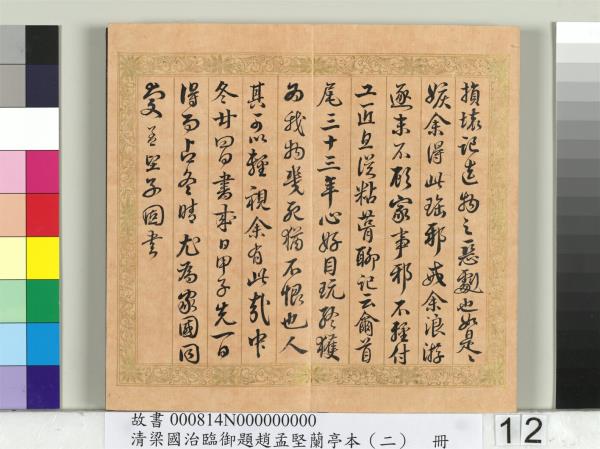 損壞記造物之惡劇也如是之
嫉余得此瑤邪或余浪游
逐末不顧家事邪不輕付
工匠且從粘背聊記云爾首
尾三十三年心好目玩終獲
為我物幾死猶不恨也人
其可以輕視余有此哉中
冬廿四書來日甲子先一日
得雨占冬晴尤為家國同
慶孟堅子固書
故書000814N000000000
清梁國治臨御題趙孟堅蘭亭本（二） 冊
12